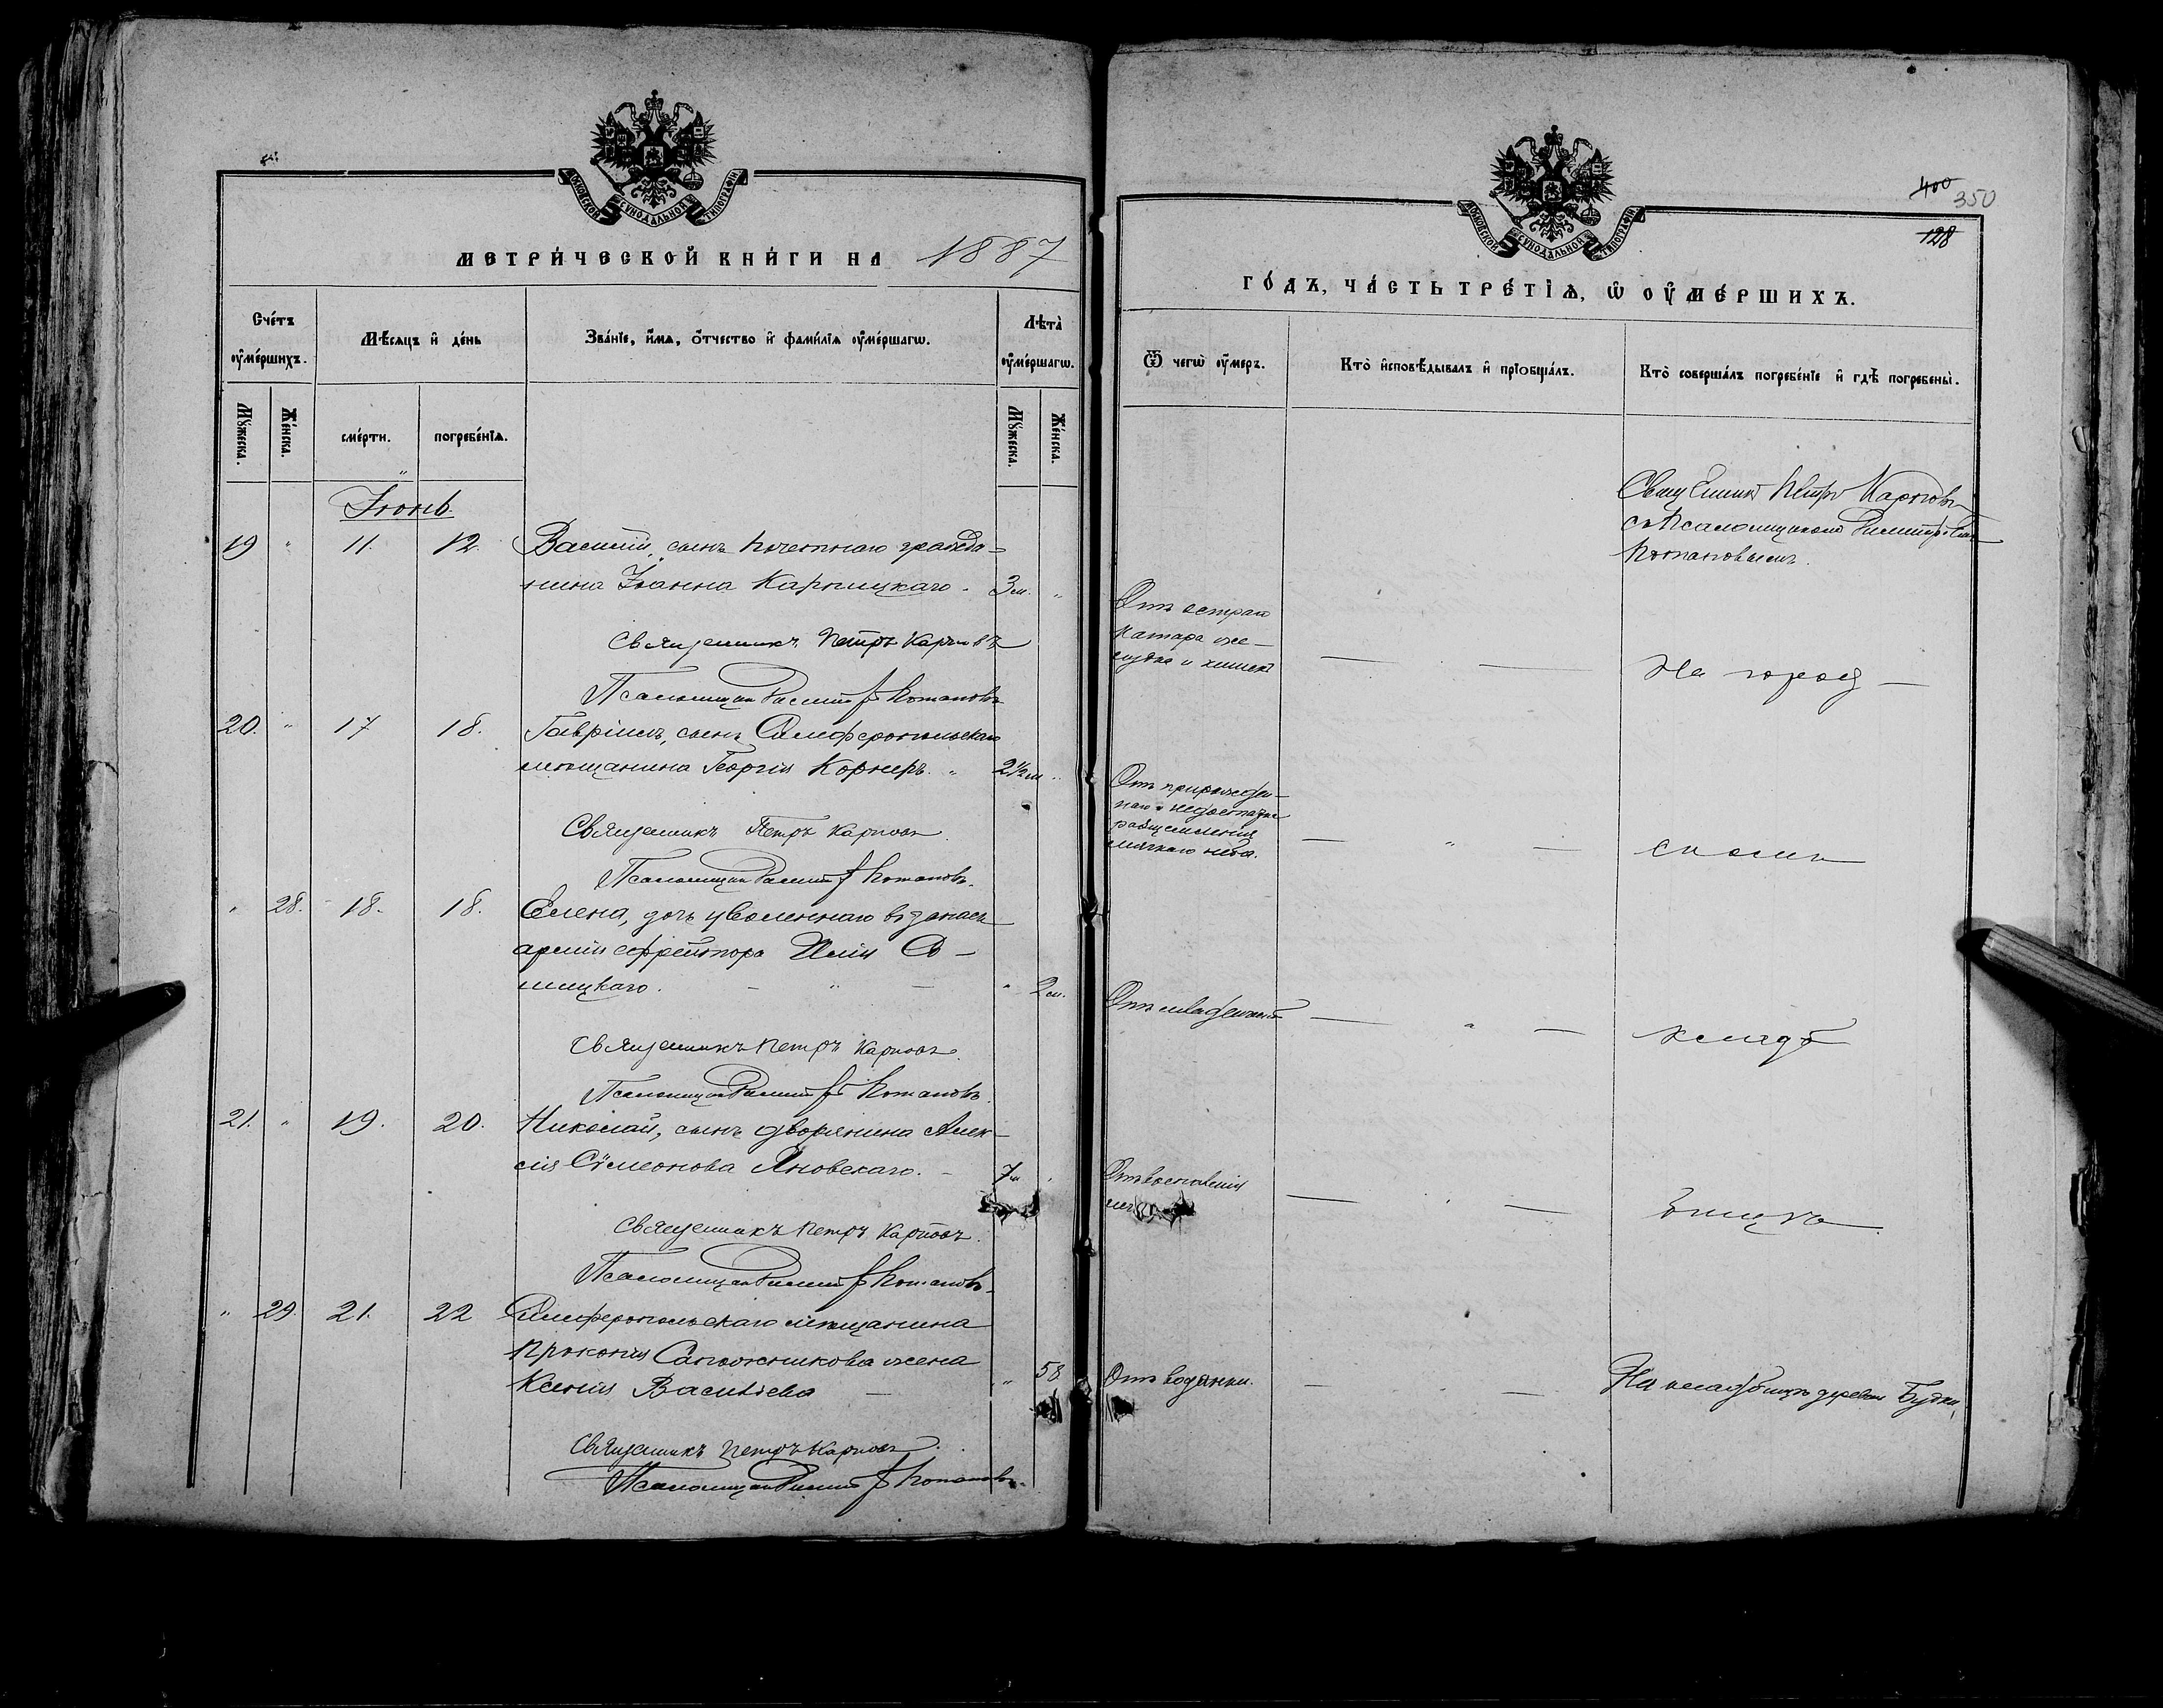 МОСКОВСКОЙ СѴНОДАЛЬНОЙ ТИПОГРАФІИ
МЕТРИ́ЧЕСКОЙ КНИ́ГИ НА 1887
Сче́тъ оу҆ме́ршихъ.
Мѣ́сяцъ и҆ де́нь
Зва́нїе, и҆́мѧ, ѻ҆́тчество и҆ фами́лїѧ оу҆ме́ршагѡ.
Лѣ́та оу҆ме́ршагѡ.
Мꙋ́жеска.
Же́нска.
сме́рти.
погребе́нїѧ.
Мꙋ́жеска.
Же́нска.
Іюнь.
19 " 11. 12. Василій, сынъ почетнаго гражда=
нина Іоанна Карпицкаго. 3 м. "
Священникъ Петръ Карповъ
Псаломщикъ Димитрій Потаповъ
20. " 17 18. Гавріилъ, сынъ Симферопольскаго
мѣщанина Георгія Корнеръ. " 2½ м "
Священникъ Петръ Карповъ.
Псаломщикъ Димитрій Потаповъ.
" 28. 18. 18. Елена, дочь уволеннаго въ запасъ
арміи ефрейтора Иліи Со-
лицкаго. " 2 м.
Священникъ Петръ Карповъ.
Псаломщикъ Димитрій Потаповъ.
21. " 19. 20. Николай, сынъ дворянина Алек-
сія Сѵмеонова Яновскаго. 7 м "
Священникъ Петръ Карповъ.
Псаломщикъ Димитрій Потаповъ.
" 29. 21. 22 Симферопольскаго мѣщанина
Прокопія Сапожникова жена
Ксенія Васильева " 58
Священникъ Петръ Карповъ.
Псаломщикъ Димитрій Потаповъ.
400 350
128
МОСКОВСКОЙ СѴНОДАЛЬНОЙ ТИПОГРАФІИ
ГО́ДЪ, ЧА́СТЬ ТРЕ́ТЇѦ, Ѡ҆ ОУ҆МЕ́РШИХЪ.
Ѿ чегѡ̀ оу҆́меръ.
Кто̀ и҆сповѣ́дывалъ и҆ прїобща́лъ.
Кто̀ соверша́лъ погребе́нїе и҆ гдѣ̀ погребены̀.
Священникъ Петръ Карповъ
съ Псаломщикомъ Димитріемъ
Потаповымъ.
Отъ остраго
катара же-
лудка и кишекъ
На город-
Отъ прирожден-
наго недостатка
расщепленія
мягкаго неба.
скомъ
Отъ младенческой
кладб
Отъ воспаленія
бищѣ
Отъ водянки.
На кладбищѣ деревни Будки